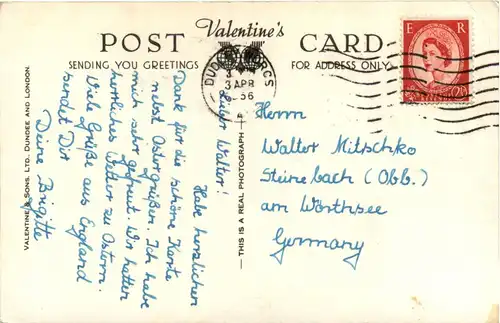 POST Valentine's CARD
SENDING YOU GREETINGS
FOR ADDRESS ONLY
E R
3 APR
56
Lieber Walter!
Habe herzlichen
Dank für die schöne Karte
nebst Ostergrüßen. Ich habe
mich sehr gefreut. Wir hatten
herrliches Wetter zu Ostern.
Viele Grüße aus England
sendet Dir
Deine Brigitte
VALENTINE & SONS LTD. DUNDEE AND LONDON.
THIS IS A REAL PHOTOGRAPH
Herrn
Walter Mitschko
Steinebach (Obb.)
am Wörthsee
Germany